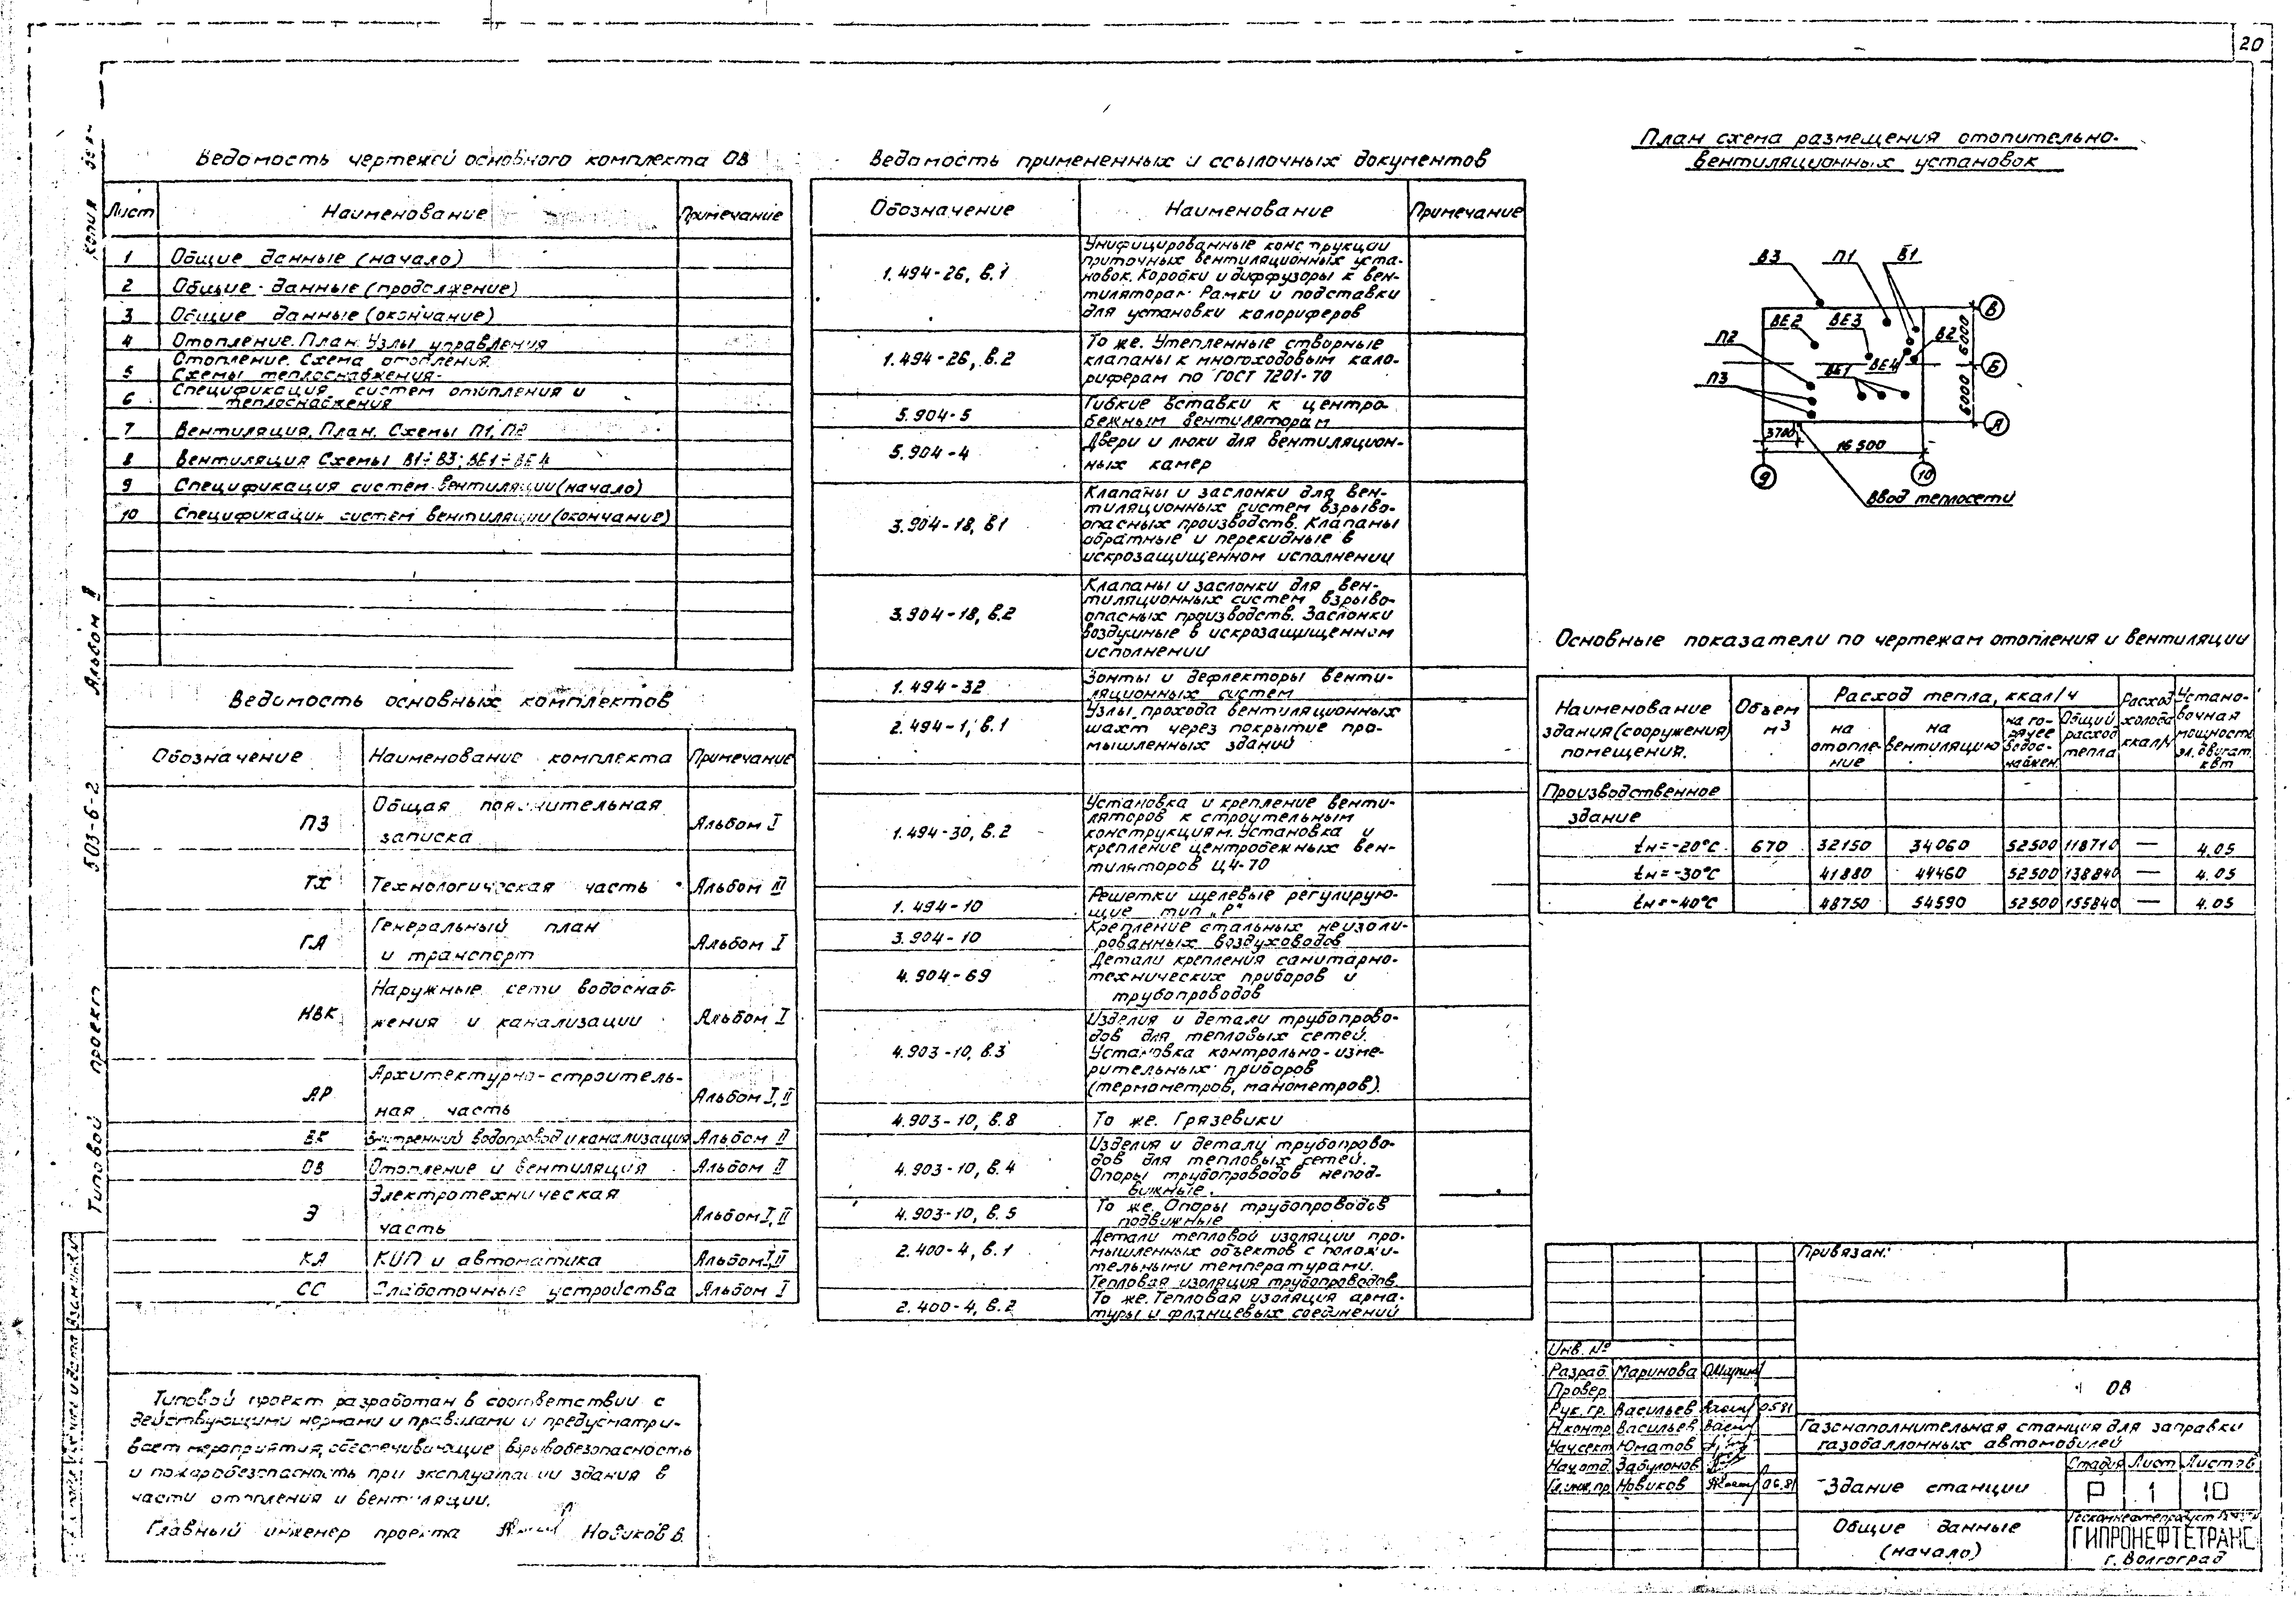 20
Копия
Альбом II
Типовой проект 503-6-2
Ведомость чертежей основного комплекта ОВ
Лист Наименование Примечание
1 Общие данные (начало)
2 Общие данные (продолжение)
3 Общие данные (окончание)
4 Отопление. План. Узлы управления
Отопление. Схема отопления.
5 Схемы теплоснабжения.
Спецификация систем отопления и
6 теплоснабжения
7 Вентиляция. План. Схемы П1, П2
8 Вентиляция Схемы В1÷В3; ВЕ1÷ВЕ4
9 Спецификация систем вентиляции (начало)
10 Спецификации систем вентиляции (окончание)
Ведомость основных комплектов
Обозначение Наименование комплекта Примечание
ПЗ Общая пояснительная
записка Альбом I
ТХ Технологическая часть Альбом III
ГА Генеральный план
и транспорт Альбом I
НВК Наружные сети водоснаб-
жения и канализации Альбом I
АР Архитектурно-строитель-
ная часть Альбом I, II
ВК Внутренний водопровод и канализация Альбом II
ОВ Отопление и вентиляция Альбом II
Э Электротехническая
часть Альбом I, II
КА КИП и автоматика Альбом I, II
СС Слаботочные устройства Альбом I
Типовой проект разработан в соответствии с
действующими нормами и правилами и предусматри-
вает мероприятия, обеспечивающие взрывобезопасность
и пожаробезопасность при эксплуатации здания в
части отопления и вентиляции.
Главный инженер проекта Новиков В.
Ведомость примененных и ссылочных документов
Обозначение Наименование Примечание
1.494-26, в.1 Унифицированные конструкции
приточных вентиляционных уста-
новок. Коробки и диффузоры к вен-
тиляторам. Рамки и подставки
для установки калориферов
1.494-26, в.2 То же. Утепленные створные
клапаны к многоходовым кало-
риферам по ГОСТ 7201-70
5.904-5 Гибкие вставки к центро-
бежным вентиляторам
5.904-4 Двери и люки для вентиляцион-
ных камер
3.904-18, в1 Клапаны и заслонки для вен-
тиляционных систем взрыво-
опасных производств. Клапаны
обратные и перекидные в
искрозащищенном исполнении
3.904-18, в.2 Клапаны и заслонки для вен-
тиляционных систем взрыво-
опасных производств. Заслонки
воздушные в искрозащищенном
исполнении
1.494-32 Зонты и дефлекторы венти-
ляционных систем
2.494-1, в.1 Узлы прохода вентиляционных
шахт через покрытие про-
мышленных зданий
1.494-30, в.2 Установка и крепление венти-
ляторов к строительным
конструкциям. Установка и
крепление центробежных вен-
тиляторов Ц4-70
1.494-10 Решетки щелевые регулирую-
щие тип „Р"
3.904-10 Крепление стальных неизоли-
рованных воздуховодов
4.904-69 Детали крепления санитарно-
технических приборов и
трубопроводов
4.903-10, в.3 Изделия и детали трубопрово-
дов для тепловых сетей.
Установка контрольно-изме-
рительных приборов
(термометров, манометров).
4.903-10, в.8 То же. Грязевики
4.903-10, в.4 Изделия и детали трубопрово-
дов для тепловых сетей.
Опоры трубопроводов непод-
вижные.
4.903-10, в.5 То же. Опоры трубопроводов
подвижные
2.400-4, в.1 Детали тепловой изоляции про-
мышленных объектов с положи-
тельными температурами.
Тепловая изоляция трубопроводов
2.400-4, в.2 То же. Тепловая изоляция арма-
туры и фланцевых соединений
План схема размещения отопительно-
вентиляционных установок
В3 П1 В1
ВЕ2 ВЕ3 В2
П2 ВЕ1 ВЕ4
П3
В
Б
А
6000 6000
3780
16 500
9 10
Ввод теплосети
Основные показатели по чертежам отопления и вентиляции
Наименование здания (сооружения) помещения. Объем м³ Расход тепла, ккал/ч Расход холода ккал/ч Устано-вочная мощность эл. двигат. кВт
на отопле-ние на вентиляцию на го-рячее водос-набжен. Общий расход тепла
Производственное
здание
tн=-20°С 670 32150 34060 52500 118710 — 4.05
tн=-30°С 41880 44460 52500 138840 — 4.05
tн=-40°С 48750 54590 52500 155840 — 4.05
Привязан:
Инв. №
Разраб. Маринова
Провер.
Рук. гр. Васильев 05.81
Н.контр. Васильев
Нач.сект Юматов
Нач.отд. Забулонов
Гл.инж.пр. Новиков 06.81
ОВ
Газонаполнительная станция для заправки
газобаллонных автомобилей
Здание станции
Стадия Лист Листов
Р 1 10
Общие данные
(начало)
ГИПРОНЕФТЕТРАНС
г. Волгоград